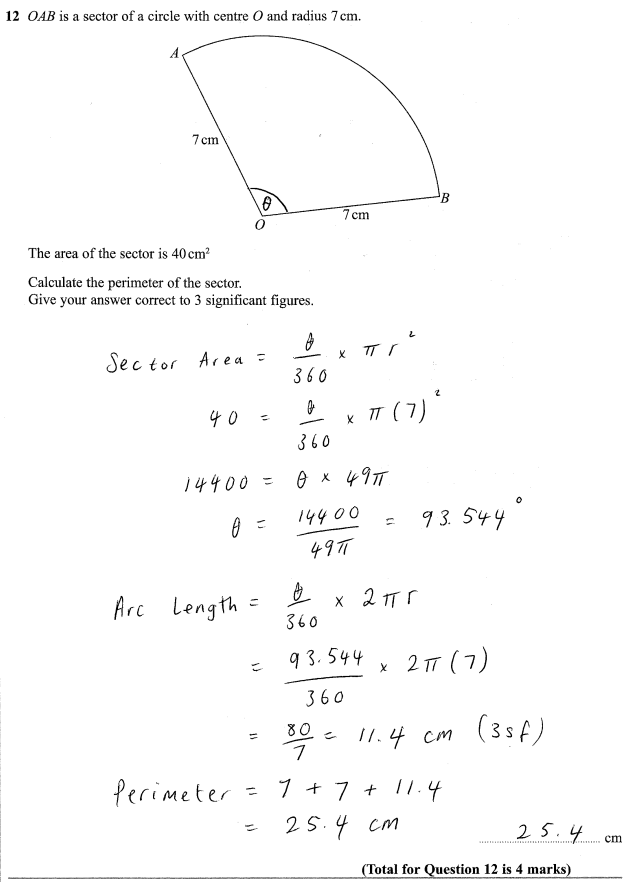 12 OAB is a sector of a circle with centre O and radius 7 cm.
A
7 cm
θ
B
7 cm
O
The area of the sector is 40 cm²
Calculate the perimeter of the sector.
Give your answer correct to 3 significant figures.
Sector Area = θ/360 × πr²
40 = θ/360 × π(7)²
14400 = θ × 49π
θ = 14400/49π = 93.544°
Arc Length = θ/360 × 2πr
= 93.544/360 × 2π(7)
= 80/7 = 11.4 cm (3sf)
Perimeter = 7 + 7 + 11.4
= 25.4 cm
25.4 cm
(Total for Question 12 is 4 marks)